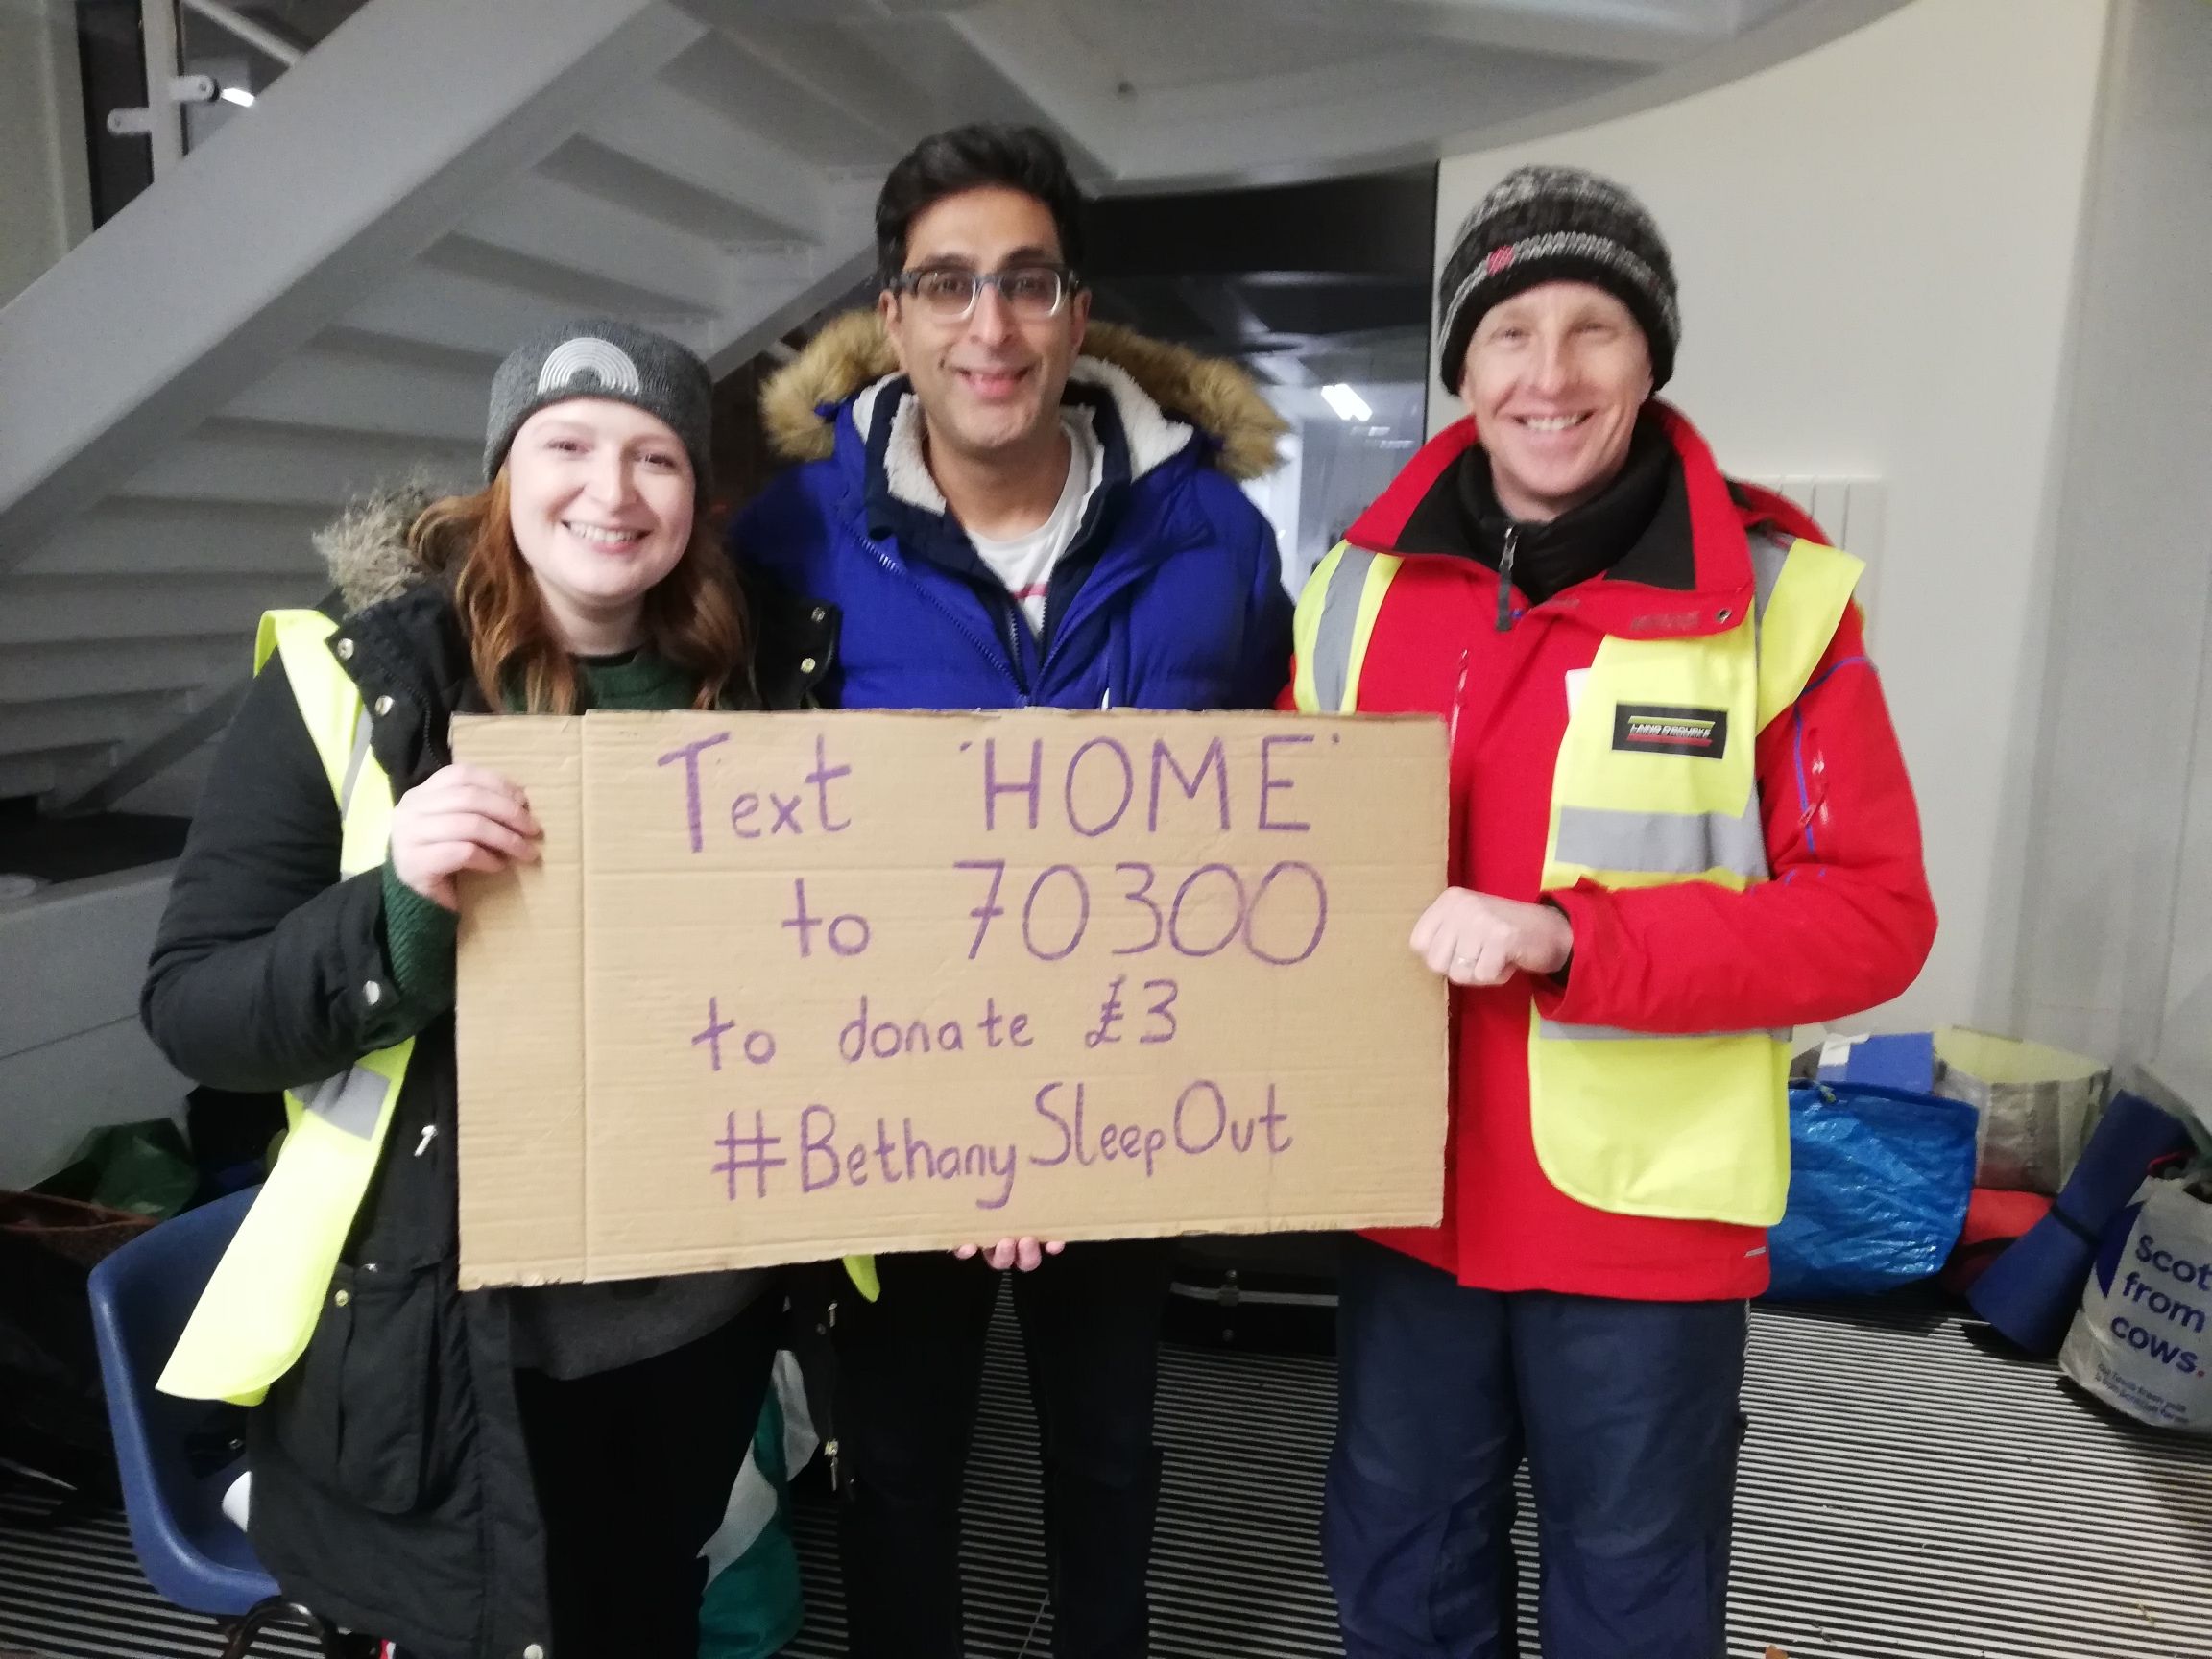 Text 'HOME'
to 70300
to donate £3
#BethanySleepOut
LAING O'ROURKE
Scot
from
cows.